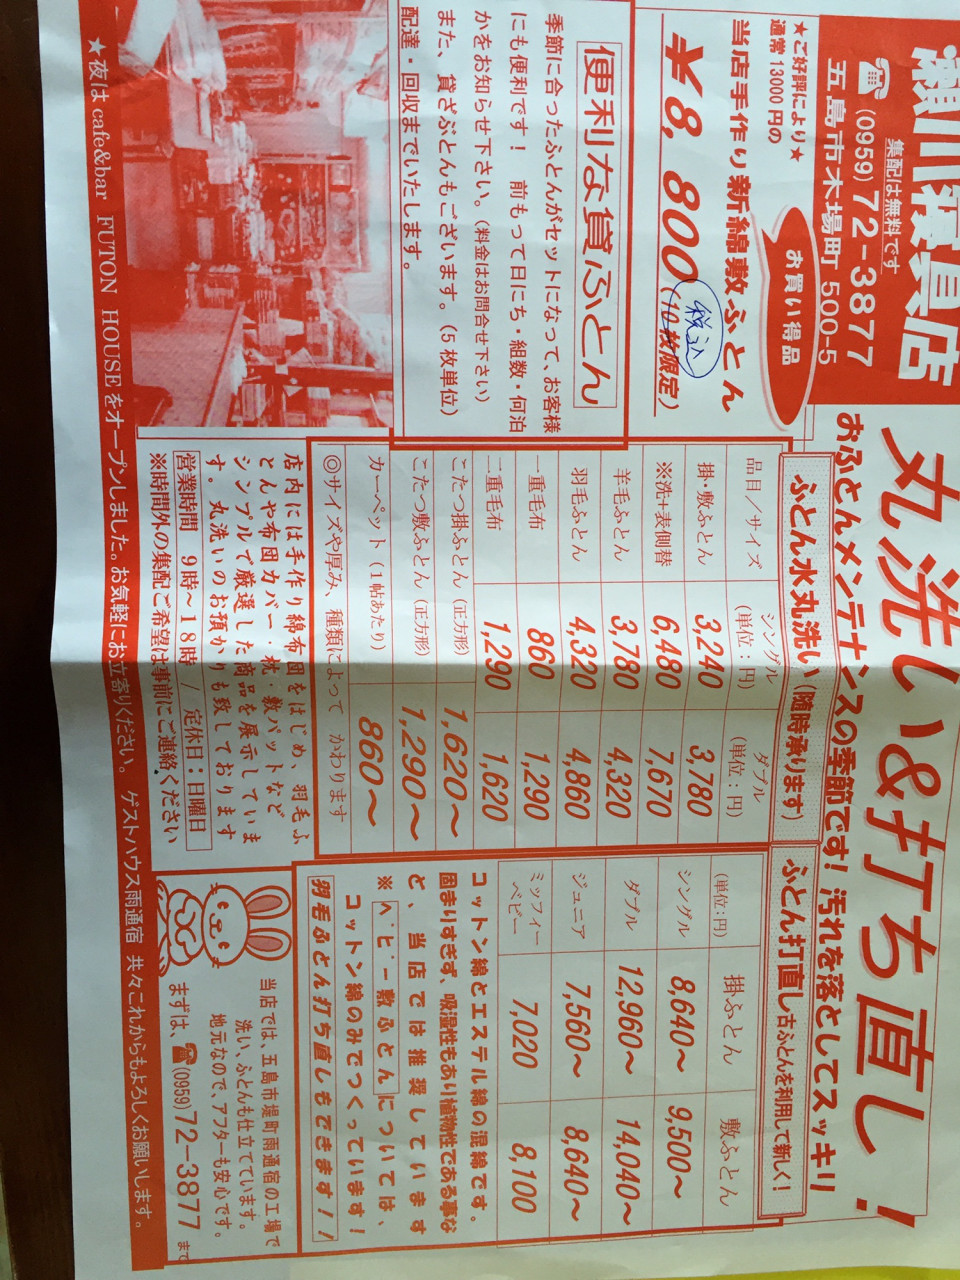 瀬川寝具店
集配は無料です
☎(0959)72-3877
五島市木場町500-5
★ご好評により★
通常13000円の
お買い得品
当店手作り新綿敷ふとん
¥8,800(10枚限定)
税込
便利な貸ふとん
季節に合ったふとんがセットになって、お客様
にも便利です！ 前もって日にち・組数・何泊
かをお知らせ下さい。(料金はお問合せ下さい)
また、貸ざぶとんもございます。(5枚単位)
配達・回収までいたします。
丸洗い&打ち直し！
おふとんメンテナンスの季節です！汚れを落としてスッキリ
ふとん水丸洗い(随時承ります)
品目／サイズ シングル(単位：円) ダブル(単位：円)
掛・敷ふとん 3,240 3,780
※洗+表側替 6,480 7,670
羊毛ふとん 3,780 4,320
羽毛ふとん 4,320 4,860
一重毛布 860 1,290
二重毛布 1,290 1,620
こたつ掛ふとん(正方形) 1,620〜
こたつ敷ふとん(正方形) 1,290〜
カーペット(1帖あたり) 860〜
◎サイズや厚み、種類によって かわります
ふとん打直し古ふとんを利用して新しく！
(単位:円) 掛ふとん 敷ふとん
シングル 8,640〜 9,500〜
ダブル 12,960〜 14,040〜
ジュニア 7,560〜 8,640〜
ミッフィー
ベビー 7,020 8,100
コットン綿とエステル綿の混綿です。
固まりすぎず、吸湿性もあり植物性である事な
ど、当店では推奨しています
※ベビー敷ふとんについては、
コットン綿のみでつくっています！
羽毛ふとん打ち直しもできます！！
店内には手作り綿布団をはじめ、羽毛ふ
とんや布団カバー・枕・敷パットなど
シンプルで厳選した商品を展示していま
す。丸洗いのお預かりも致しております
営業時間 9時〜18時 / 定休日：日曜日
※時間外の集配ご希望は事前にご連絡ください
当店では、五島市堤町雨通宿の工場で
洗い、ふとんも仕立てています。
地元なので、アフターも安心です。
まずは、☎(0959)72-3877まで
★夜はcafe&bar FUTON HOUSEをオープンしました。お気軽にお立寄りください。 ゲストハウス雨通宿 共々これからもよろしくお願いします。